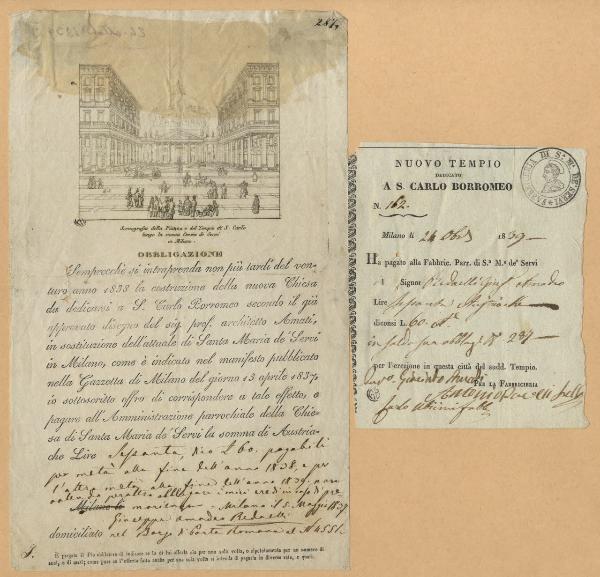 287
Scenografia della Piazza e del Tempio di S. Carlo
lungo la nuova Corsia de' Servi
in Milano
OBBLIGAZIONE
Semprecchè si intraprenda non più tardi del ven-
turo anno 1838 la costruzione della nuova Chiesa
da dedicarsi a S. Carlo Borromeo secondo il già
approvato disegno del sig. prof. architetto Amati,
in sostituzione dell'attuale di Santa Maria de' Servi
in Milano, come è indicato nel manifesto pubblicato
nella Gazzetta di Milano del giorno 13 aprile 1837,
io sottoscritto offro di corrispondere a tale effetto, e
pagare all'Amministrazione parrochiale della Chie-
sa di Santa Maria de' Servi la somma di Austria-
che Lire Sessanta, dico L 60, pagabili
per metà alla fine dell'anno 1838, e per
l'altra metà alla fine dell'anno 1839, non
i miei eredi in caso di
Milano li Milano il 5 Maggio 1837
Giuseppe Amadeo Redaelli
domiciliato nel Borgo di Porta Romana al N. 4551.
NUOVO TEMPIO
DEDICATO
A S. CARLO BORROMEO
FABBRICERIA DI S.ª M.ª DE' SERVI
N. 162
Milano li 24 1839
Ha pagato alla Fabbric. Parr. di S.ª M.ª de' Servi
il Signor Redaelli Amadeo
Lire Sessanta Austriache
diconsi L. 60
in saldo per obbligaz. N. 287
per l'erezione in questa città del sudd. Tempio.
PER LA FABBRICERIA